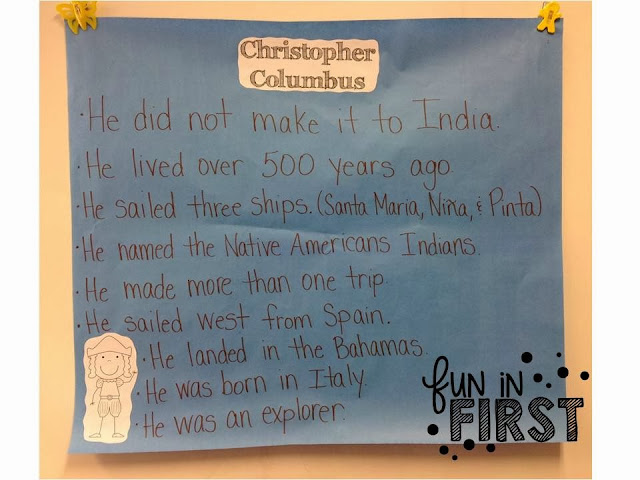 Christopher
Columbus
· He did not make it to India.
· He lived over 500 years ago.
· He sailed three ships. (Santa Maria, Niña, & Pinta)
· He named the Native Americans Indians.
· He made more than one trip
· He sailed west from Spain.
· He landed in the Bahamas.
· He was born in Italy.
· He was an explorer.
fun in
FIRST